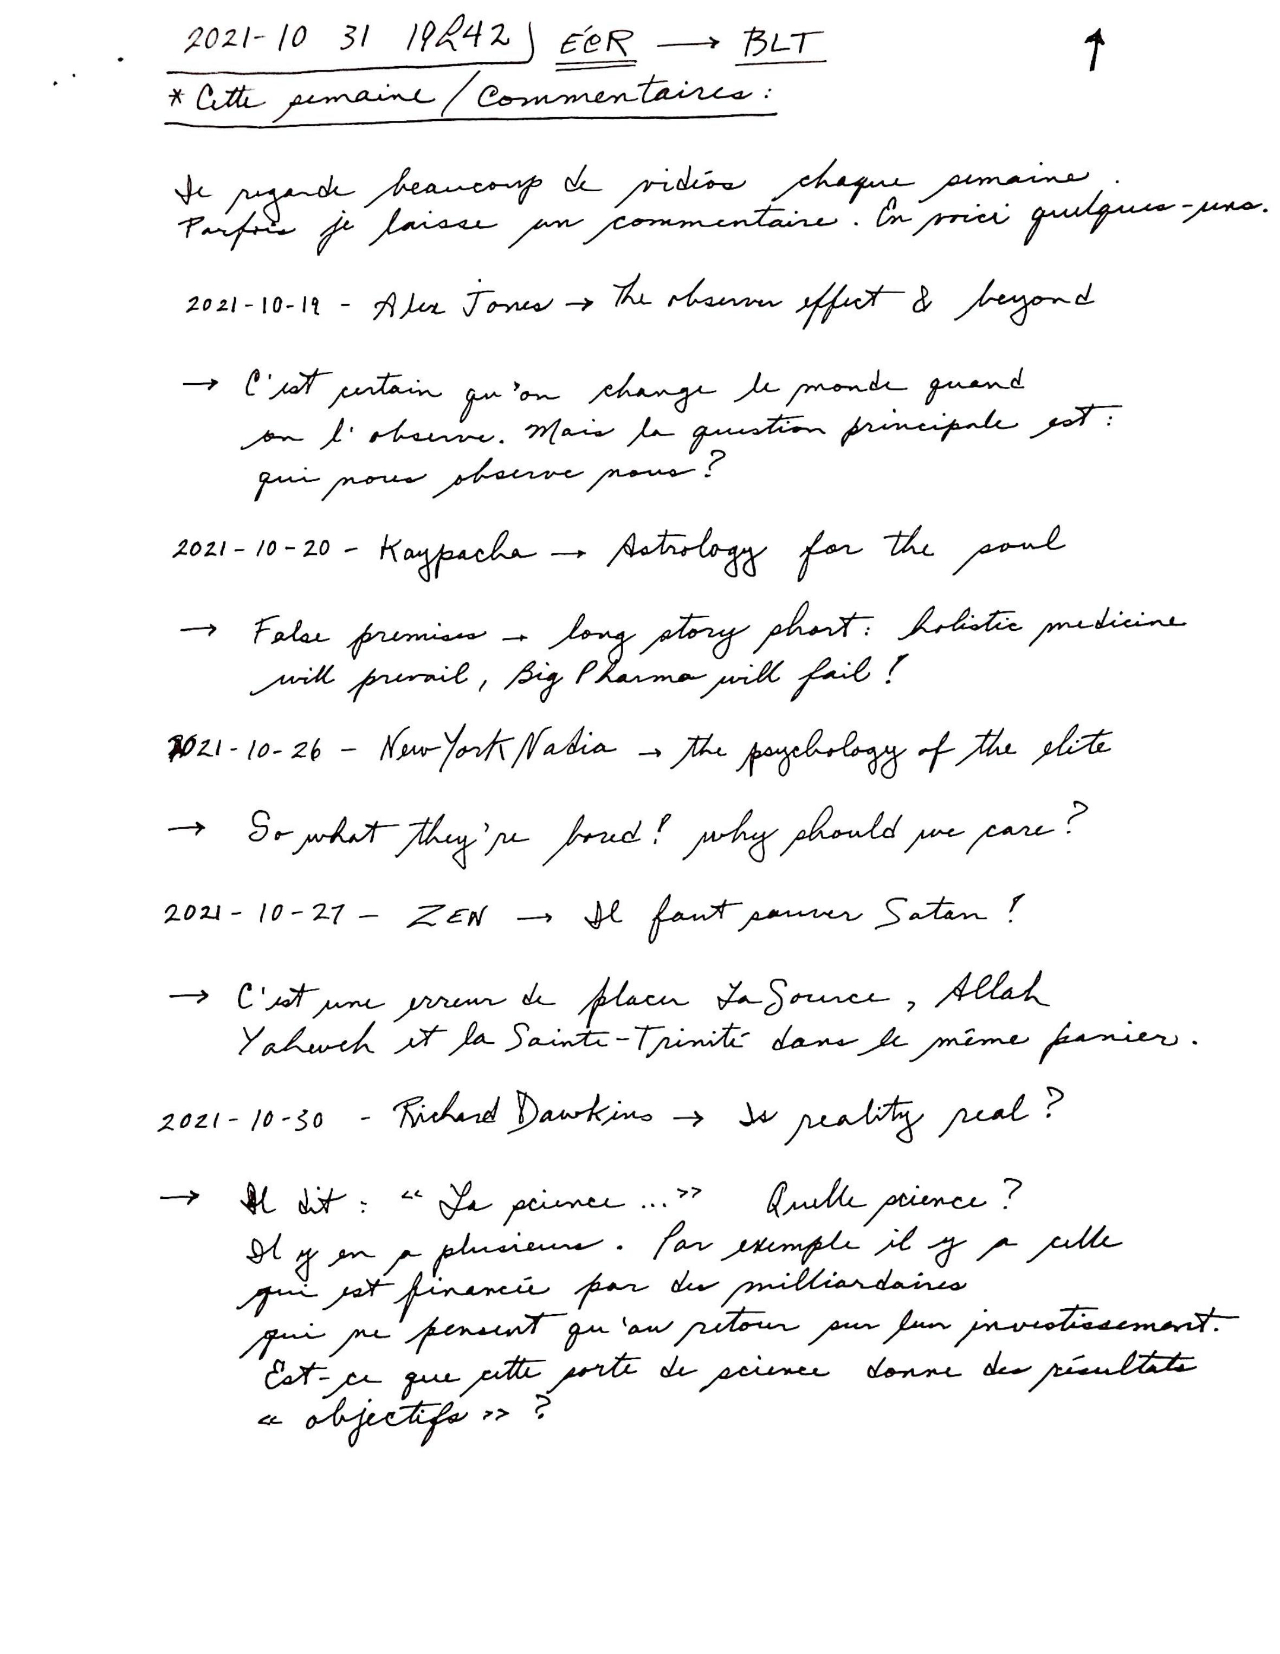 2021-10 31 19h42 ÉCR → BLT ↑
* Cette semaine / Commentaires :
Je regarde beaucoup de vidéos chaque semaine.
Parfois je laisse un commentaire. En voici quelques-uns.
2021-10-19 - Alex Jones → The observer effect & beyond
→ C'est certain qu'on change le monde quand
on l'observe. Mais la question principale est :
qui nous observe nous ?
2021-10-20 - Kaypacha → Astrology for the soul
→ False premises → long story short : holistic medicine
will prevail, Big Pharma will fail !
2021-10-26 - New York Nadia → the psychology of the elite
→ So what they're bored ! why should we care ?
2021-10-27 - ZEN → Il faut sauver Satan !
→ C'est une erreur de placer La Source, Allah
Yahweh et la Sainte-Trinité dans le même panier.
2021-10-30 - Richard Dawkins → Is reality real ?
→ Il dit : « La science ... » Quelle science ?
Il y en a plusieurs. Par exemple il y a celle
qui est financée par des milliardaires
qui ne pensent qu'au retour sur leur investissement.
Est-ce que cette sorte de science donne des résultats
« objectifs » ?